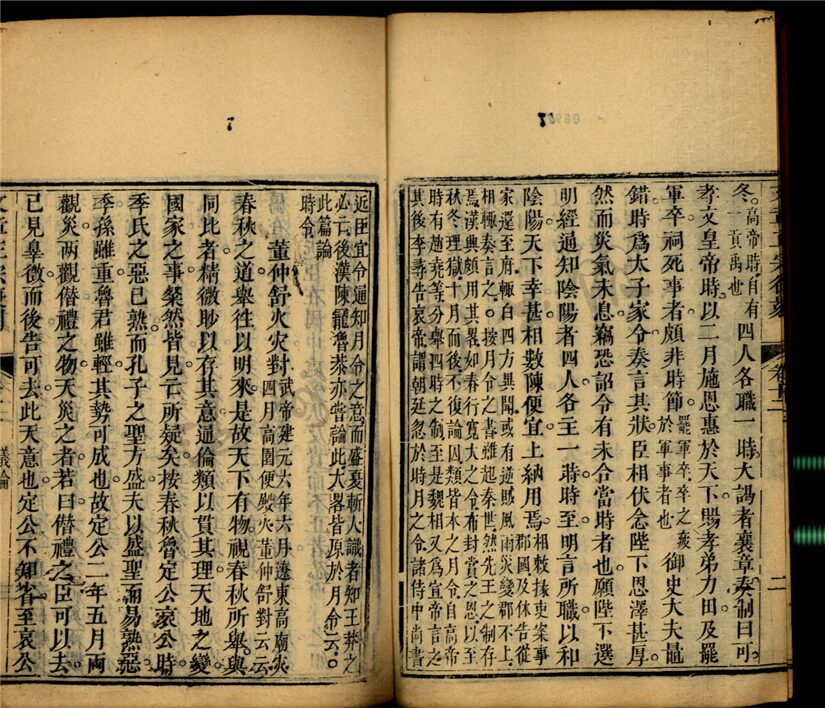 冬。高帝時自有一貢禹也四人各職一時大謁者襄章奏制曰可
孝文皇帝時以二月施恩惠於天下賜孝弟力田及罷
軍卒祠死事者頗非時節罷軍卒卒之疲於軍事者也御史大夫鼂
錯時爲太子家令奏言其狀臣相伏念陛下恩澤甚厚
然而災氣未息竊恐詔令有未合當時者也願陛下選
明經通知陰陽者四人各主一時時至明言所職以和
陰陽天下幸甚相數陳便宜上納用焉相敕掾吏案事郡國及休告從
家還至府輒白四方異聞或有逆賊風雨災變郡不上
相輒奏言之。按月令之書雖起秦世然先王之制存
焉漢興頗用其畧如春行寬大之令布封賞之恩以至
秋冬理獄十月而後不復論囚類皆本之月令自高帝
時有趙堯等分舉四時之制至是魏相又爲宣帝言之
其後李尋告哀帝謂朝廷忽於時月之令諸侍中尚書
卷十二
二
近臣宜令通知月令之意而盛夏斬人識者知王莽之
必亡後漢陳寵魯恭亦嘗論此大畧皆原於月令云。
此篇論
時令
董仲舒火災對武帝建元六年六月遼東高廟災四月高園便殿火董仲舒對云云
春秋之道舉往以明來是故天下有物視春秋所舉與
同比者精微眇以存其意通倫類以貫其理天地之變
國家之事粲然皆見亡所疑矣按春秋魯定公哀公時
季氏之惡已熟而孔子之聖方盛夫以盛聖而易熟惡
季孫雖重魯君雖輕其勢可成也故定公二年五月兩
觀災兩觀僭禮之物天災之者若曰僭禮之臣可以去
已見辠徵而後告可去此天意也定公不知省至哀公
議論
7